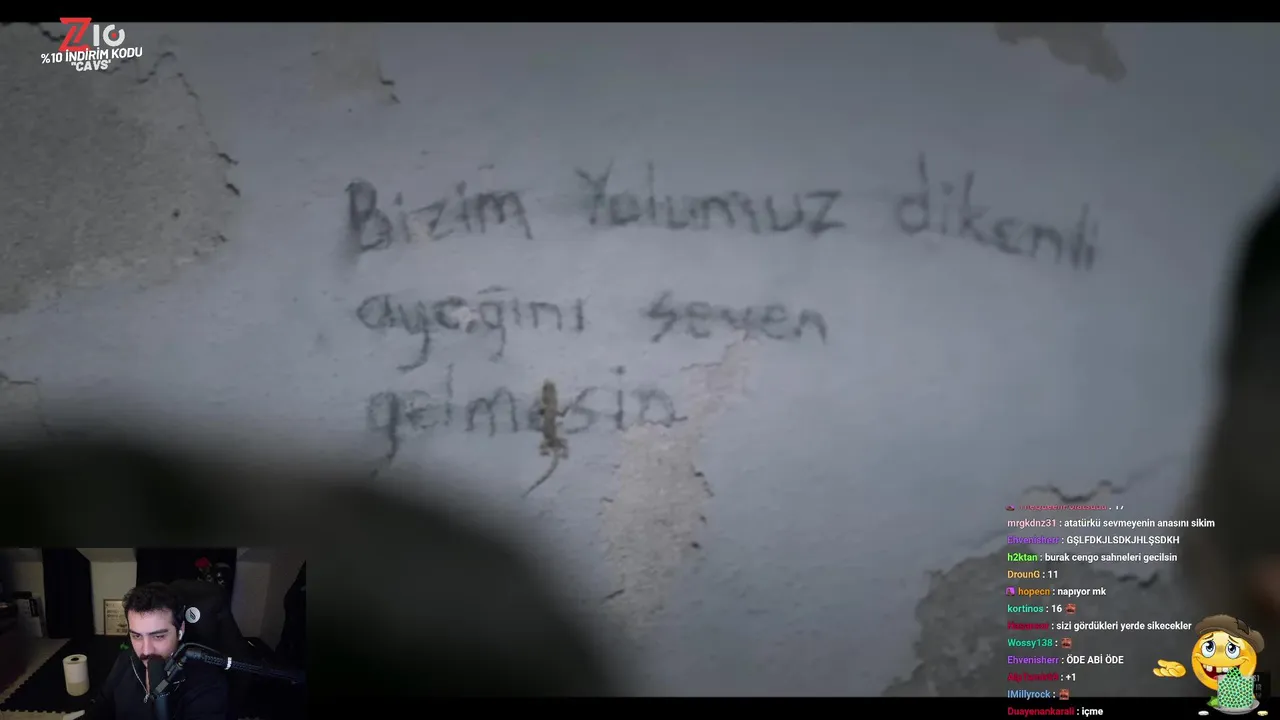 Z10
%10 İNDİRİM KODU
"CAVS"
Bizim Yolumuz dikenli
ayağını seven
gelmesin
mrgkdnz31 : atatürkü sevmeyenin anasını sikim
Ehvenisherr : GŞLFDKJLSDKJHLŞSDKH
h2ktan : burak cengo sahneleri gecilsin
DrounG : 11
hopecn : napıyor mk
kortinos : 16
: sizi gördükleri yerde sikecekler
Wossy138 :
Ehvenisherr : ÖDE ABİ ÖDE
: +1
IMillyrock :
Duayenankarali : içme